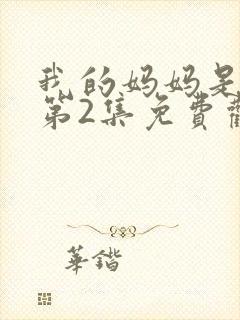 我的妈妈是
第2集免費
華鍇